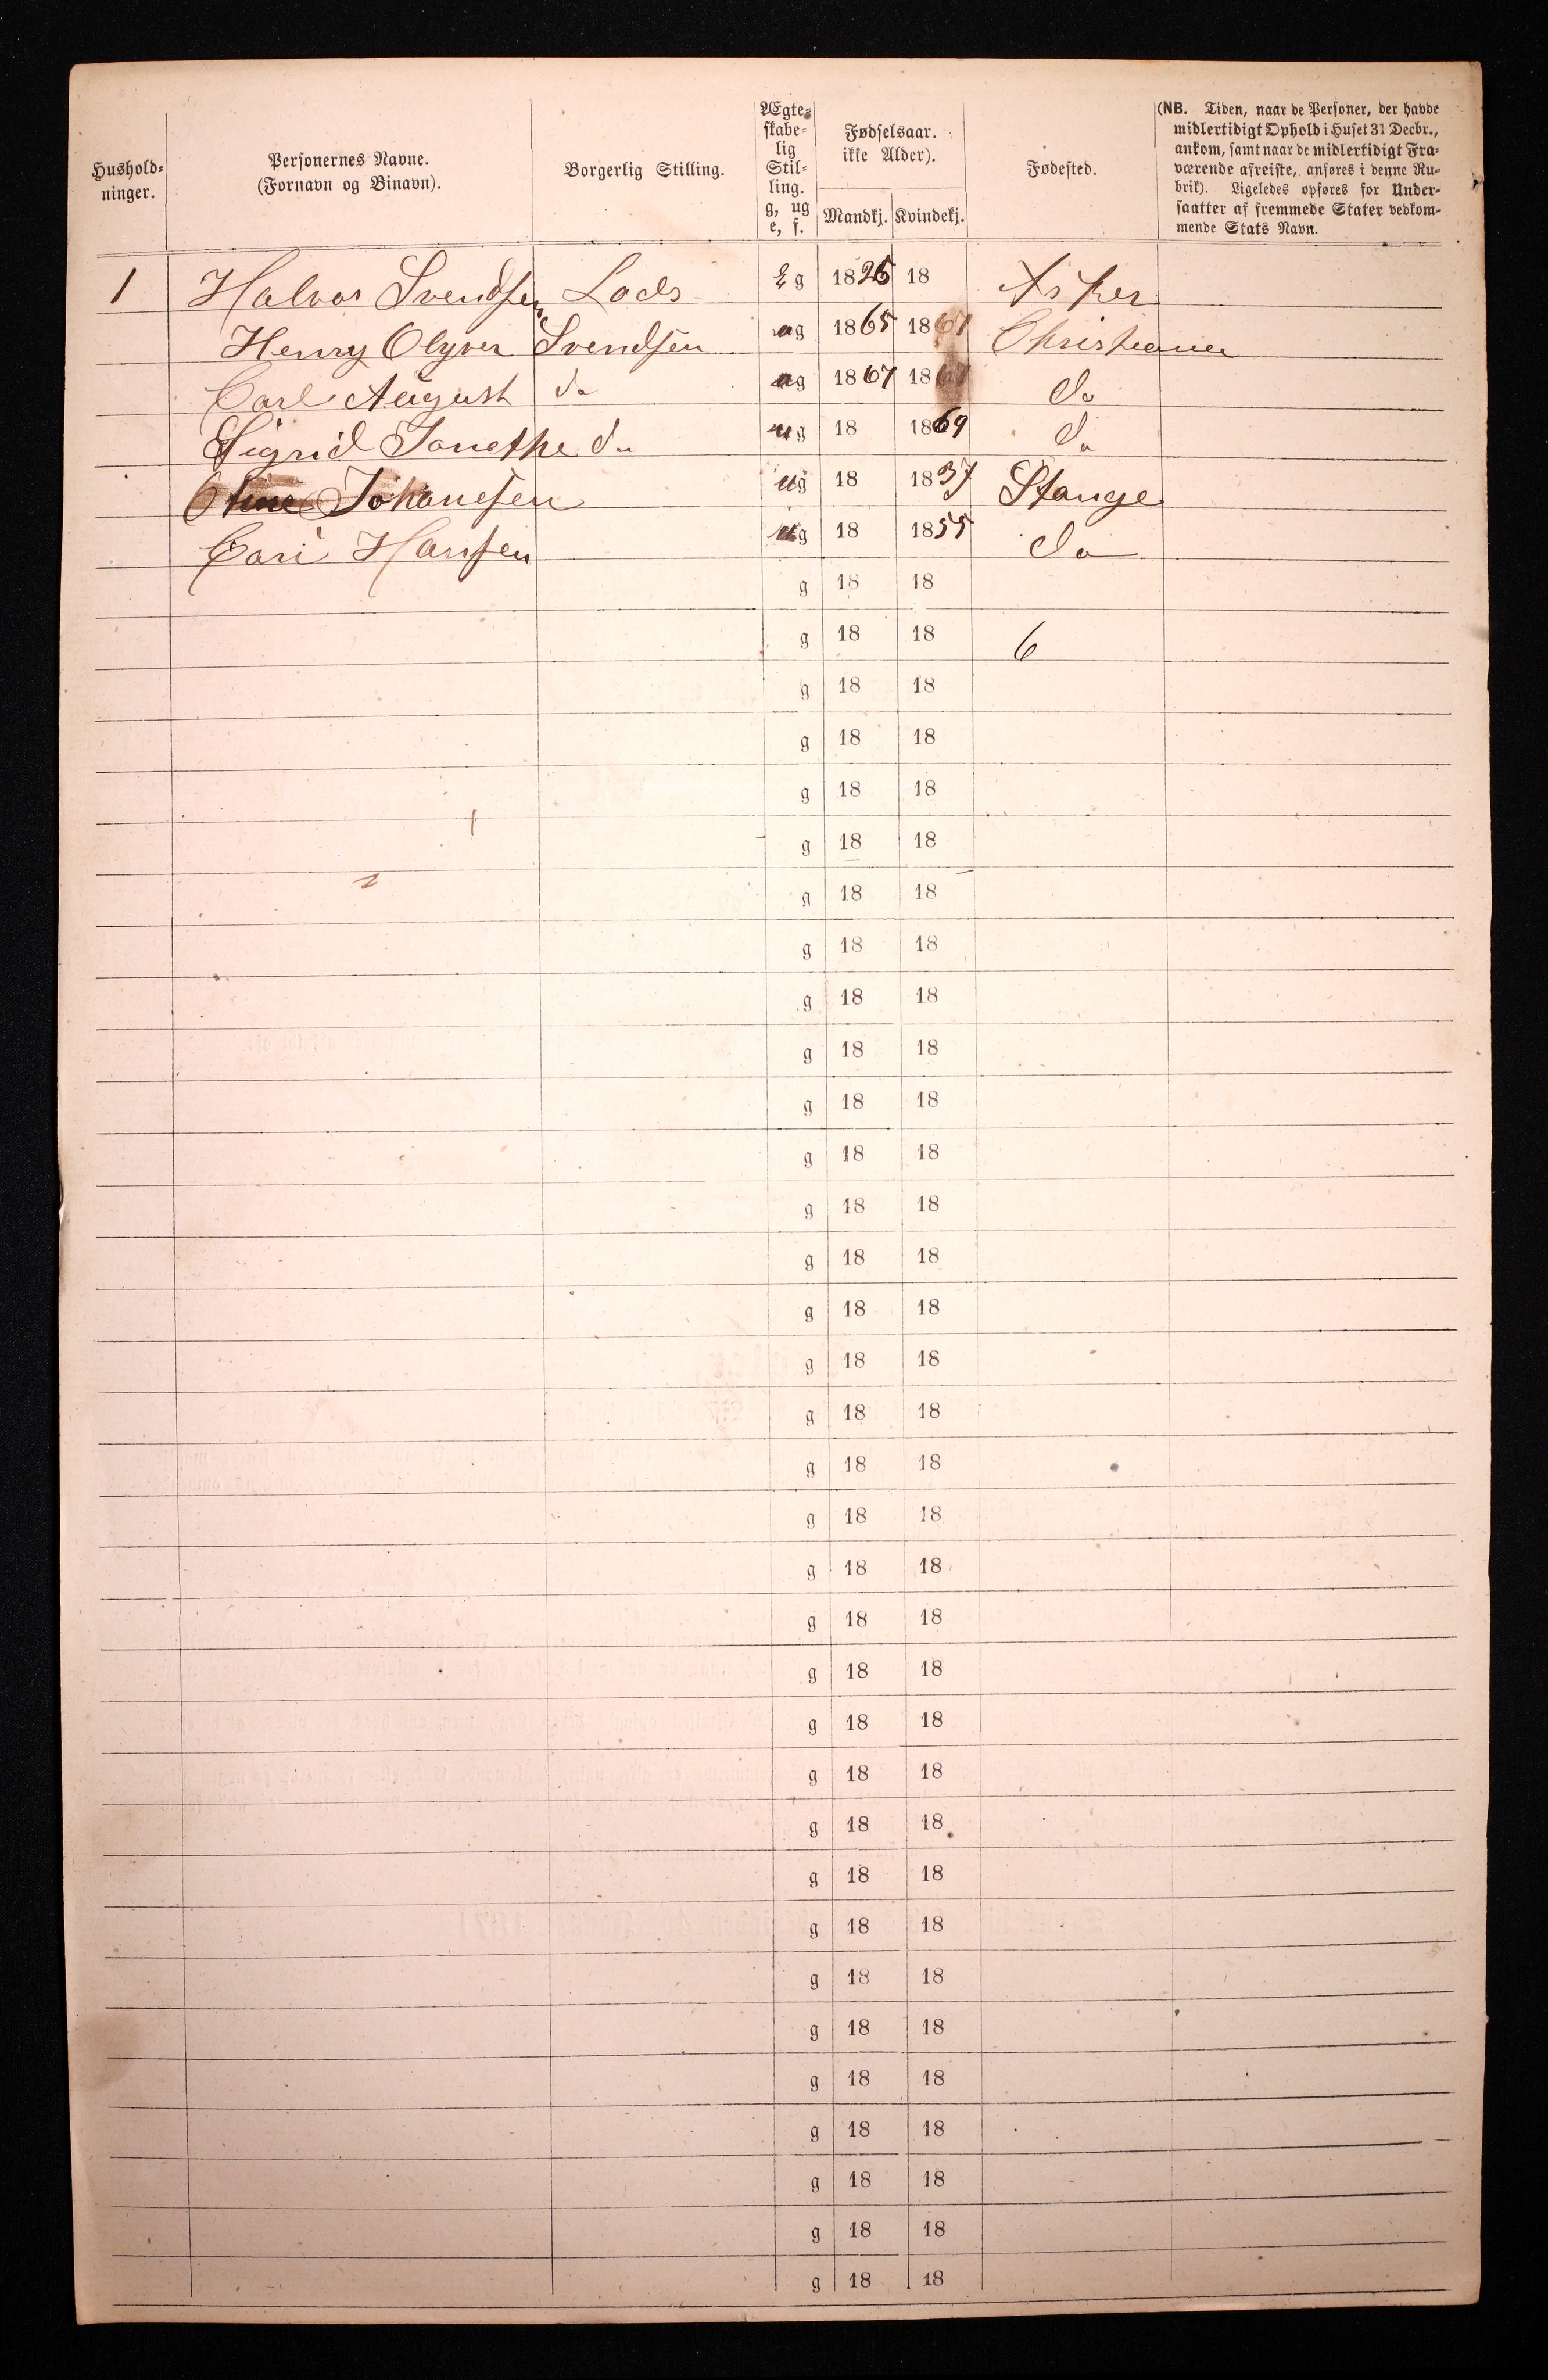 Hushold-
ninger.
Personernes Navne.
(Fornavn og Binavn).
Borgerlig Stilling.
Ægte-
skabe-
lig
Stil-
ling.
g, ug
e, f.
Fødselsaar.
ikke Alder).
Mandkj. Kvindekj.
Fødested.
(NB. Tiden, naar de Personer, der havde
midlertidigt Ophold i Huset 31 Decbr.,
ankom, samt naar de midlertidigt Fra-
værende afreiste, anføres i denne Ru-
brik). Ligeledes opføres for Under-
saatter af fremmede Stater vedkom-
mende Stats Navn.
1 Halvor Svendsen Lods g 1825 18 Asker
Henry Olyver Svendsen ug 1865 18 Christiania
Carl August do ug 1867 18 do
Sigrid Janethe do ug 18 1869 do
Johanesen ug 18 1837 Stange
Cari Hansen ug 18 1855 do
g 18 18
g 18 18 6
g 18 18
g 18 18
g 18 18
g 18 18
g 18 18
g 18 18
g 18 18
g 18 18
g 18 18
g 18 18
g 18 18
g 18 18
g 18 18
g 18 18
g 18 18
g 18 18
g 18 18
g 18 18
g 18 18
g 18 18
g 18 18
g 18 18
g 18 18
g 18 18
g 18 18
g 18 18
g 18 18
g 18 18
g 18 18
g 18 18
g 18 18
g 18 18